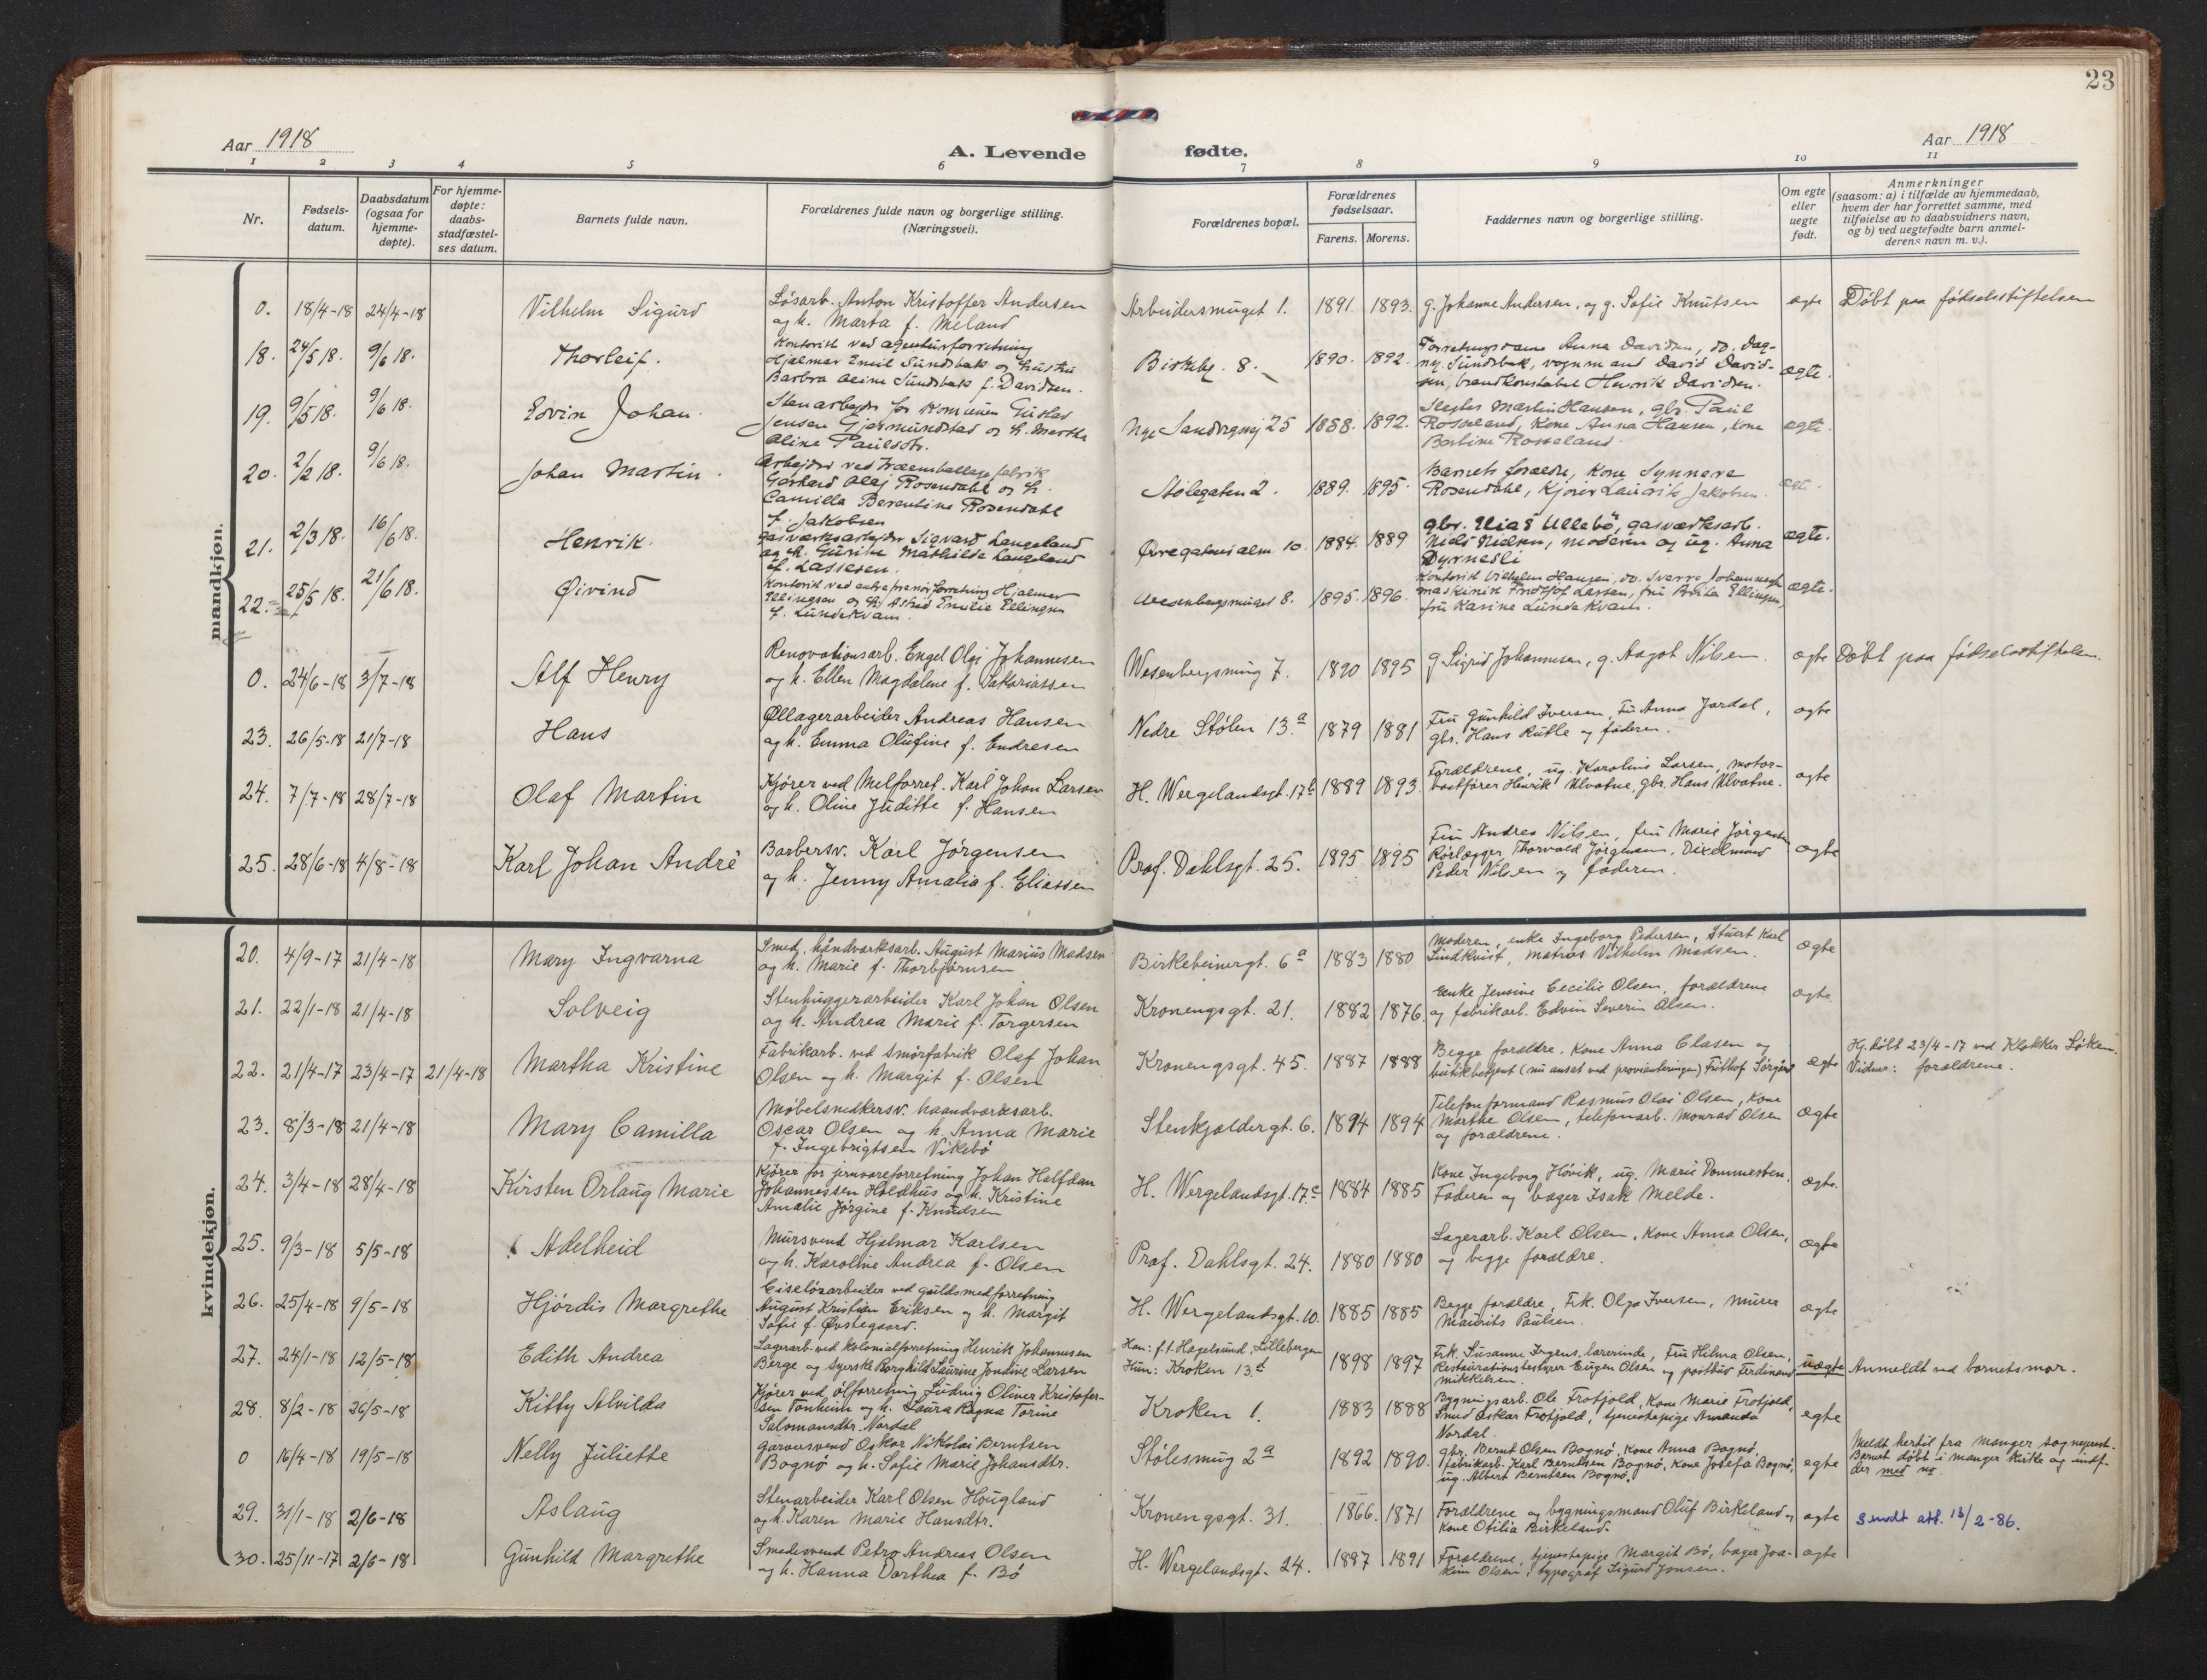 23
Aar 1918
A. Levende fødte.
Aar 1918
1 2 3 4 5 6 7 8 9 10 11
Nr.
Fødsels-
datum.
Daabsdatum
(ogsaa for
hjemme-
døpte).
For hjemme-
døpte:
daabs-
stadfæstel-
ses datum.
Barnets fulde navn.
Forældrenes fulde navn og borgerlige stilling.
(Næringsvei).
Forældrenes bopæl.
Forældrenes
fødselsaar.
Farens. Morens.
Faddernes navn og borgerlige stilling.
Om egte
eller
uegte
født.
Anmerkninger
(saasom: a) i tilfælde av hjemmedaab,
hvem der har forrettet samme, med
tilføielse av to daabsvidners navn,
og b) ved uegtefødte barn anmel-
derens navn m. v.).
mandkjøn.
0. 18/4-18 24/4-18 Vilhelm Sigurd
Løsarb. Anton Kristoffer Andersen
og h. Marta f. Meland
Arbeidersmuget 1. 1891. 1893. g. Johanne Andersen, og g. Sofie Knutsen ægte Døbt paa fødselsstiftelsen
18. 24/5 18. 9/6 18. Thorleif.
Kontorist ved agenturforretning
Hjalmar Emil Sundsbak og hustru
Barbra Aline Sundsbak f. Davidsen.
Birkebg. 8. 1890. 1892.
Forretningsdame Anna Davidsen, do. Dag-
ny Sundsbak, vognmand David David-
sen, brandkonstabel Henrik Davidsen.
ægte.
19. 9/5 18. 9/6 18. Edvin Johan.
Stenarbejder for komunen Gustav
Jensen Gjermundstad og h. Marthe
Aline Paulsdtr.
Nye Sandvigsvej 25 1888. 1892.
Martin Hansen, gbr. Paul
Rosseland, Kone Anna Hansen, kone
Bertine Rosseland
ægte.
20. 2/2 18. 9/6 18. Johan Martin.
Arbejder ved Træemballage fabrik
Gerhard Olaj Rosendahl og h.
Camilla Berentine Rosendahl
f. Jakobsen
Stølegaten 2. 1889. 1895.
Barnets forældre, kone Synneve
Rosendahl, Kjører Laurits Jakobsen.
ægte.
21. 2/3 18. 16/6 18. Henrik.
Gasværksarbejder Sigvard Langeland
og h. Gurine Mathilde Langeland
f. Lassesen.
Øvregatens alm. 10. 1884. 1889
gbr. Elias Ullebö, gasværksarb.
Niels Nielsen, moderen og ug. Anna
Dyrnesli
ægte.
22. 25/5 18. 21/6 18. Øivind
Kontorist ved entreprenörforretning Hjalmar
Ellingsen og h. Astrid Emilie Ellingsen
f. Lundekvam.
Wesenbergsmuget 8. 1895. 1896.
Kontorist Vilhelm Hansen, do. Sverre Johannesen
maskinist Fridtjof Lassen, fru Berta Ellingsen,
fru Karine Lundekvam.
ægte.
0. 24/6-18 3/7-18 Alf Henry
Renovationsarb. Engel Olai Johannesen
og h. Ellen Magdalene f. Sakariassen
Wesenbergsmug 7. 1890 1895 g. Sigrid Johannesen, g. Aagot Nilsen. ægte Døbt paa fødselsstiftelsen.
23. 26/5-18 21/7-18 Hans
Øllagerarbeider Andreas Hansen
og h. Emma Olufine f. Endresen
Nedre Stølen 13.a 1879 1881
Fru Gunhild Iversen, Fru Anna Jardal,
gbr. Hans Rutle og faderen.
ægte
24. 7/7-18 28/7-18 Olaf Martin
Kjører ved Melforret. Karl Johan Larsen
og h. Oline Juditte f. Hansen
H. Wergelandsgt. 17b 1889 1893
Forældrene, ug. Karoline Larsen, motor-
baatfører Henrik Ulvatne, gbr. Hans Ulvatne.
ægte
25. 28/6-18 4/8-18 Karl Johan André
Barbersv. Karl Jørgensen
og h. Jenny Amalia f. Eliassen
Prof. Dahlsgt. 25. 1895 1895
Fru Andrea Nilsen, fru Marie Jörgensen
Rörlægger Thorvald Jörgensen, Dixelmand
Peder Nilsen og faderen.
ægte
kvindekjøn.
20. 4/9-17 21/4-18 Mary Ingvarna
Smed, håndværksarb. August Marius Madsen
og h. Marie f. Thorbjørnsen
Birkebeinergt. 6a 1883 1880
Moderen, enke Ingeborg Pedersen, Stuert Karl
Lindkvist, matros Vilhelm Madsen.
ægte
21. 22/1-18 21/4-18 Solveig
Stenhuggerarbeider Karl Johan Olsen
og h. Andrea Marie f. Torgersen
Kronengsgt. 21. 1882 1876.
Enke Jensine Cecilie Olsen, forældrene
og fabrikarb. Edvin Severin Olsen.
ægte
22. 21/4-17 23/4-17 21/4-18 Martha Kristine
Fabrikarb. ved smörfabrik Olaf Johan
Olsen og h. Margit f. Olsen
Kronengsgt. 45. 1887 1888
Begge forældre, kone Anna Clasen og
butikbetjent (nu ansat ved provianteringen) Frithof
ægte
Hj. døbt 23/4-17 ved Klokker Løken.
Vidner: forældrene.
23. 8/3-18 21/4-18 Mary Camilla
Møbelsnedkersv. haandværksarb.
Oscar Olsen og h. Anna Marie
f. Ingebrigtsen Vikebö
Stenkjeldergt. 6. 1894 1894
Telefonformand Rasmus Olai Olsen, kone
Marthe Olsen, telefonarb. Monrad Olsen
og forældrene.
ægte
24. 3/4-18 28/4-18 Kirsten Orlaug Marie
Kjører for jernvareforretning Johan Halfdan
Johannessen Holdhus og h. Kristine
Amalie Jørgine f. Knudsen
H. Wergelandsgt. 17.c 1884 1885
Kone Ingeborg Hövik, ug. Marie Dommesten.
Faderen og bager Isak Melde.
ægte.
25. 9/3-18 5/5-18 Adelheid
Mursvend Hjalmar Karlsen
og h. Karoline Andrea f. Olsen
Prof. Dahlsgt. 24. 1880 1880
Lagerarb. Karl Olsen, kone Anna Olsen,
og begge forældre.
ægte
26. 25/4-18 9/5-18 Hjördis Margrethe
Ciselörarbeider ved guldsmedforretning
August Kristian Eriksen og h. Margit
Sofie f. Øvstegaard.
H. Wergelandsgt. 10. 1885 1885
Begge forældre, Frk. Olga Iversen, murer
Maurits Paulsen.
ægte
27. 24/1-18 12/5-18 Edith Andrea
Lagerarb. ved kolonialforretning Henrik Johannesen
Berge og Syerske Borghild Laurine Jondine Larsen
Han: f. t. Hagelsund, Lillebergen
Hun: Kroken 13.d
1898 1897
Frk. Susanne Irgens, lærerinde, Fru Hilma Olsen,
Restaurationsbestyrer Eugen Olsen og postbud Ferdinand
Mikkelsen.
uægte Anmeldt ved barnets mor.
28. 8/2-18 26/5-18 Kitty Alvilda
Kjører ved ölforretning Ludvig Oliver Kristofer-
sen Tonheim og h. Laura Ragna Torine
Salomonsdtr. Nordal
Kroken 1. 1883 1888
Bygningsarb. Ole Frotjold, Kone Marie Frotjold,
Smed Oskar Frotjold, tjenestepige Amanda
Nordal.
egte
0 16/4-18 19/5-18 Nelly Juliette
Garversvend Oskar Nikolai Berntsen
Bognö og h. Sofie Marie Johansdtr.
Stølesmug 2a 1892 1890.
gbr. Bernt Olsen Bognö, kone Anna Bognö,
fabrikarb. Karl Berntsen Bognö, kone Josefa Bognö,
ug. Albert Berntsen Bognö.
egte
Meldt hertil fra Manger sogneprest.
Barnet döbt i Manger kirke og indf.
der med no.
29. 31/1-18 2/6-18 Aslaug
Stenarbeider Karl Olsen Hougland
og h. Karen Marie Hansdtr.
Kronengsgt. 31. 1866. 1871
Forældrene og bygningsmand Oluf Birkeland og
kone Otilia Birkeland.
ægte Sendt att. 13/2-86.
30. 25/11-17 2/6-18 Gunhild Margrethe
Smedesvend Petro Andreas Olsen
og h. Hanna Dorthea f. Bö
H. Wergelandsgt. 24. 1887 1891
Forældrene, tjenestepige Margit Bö, bager Joa-
kim Olsen, typograf Sigurd Jonsen.
ægte